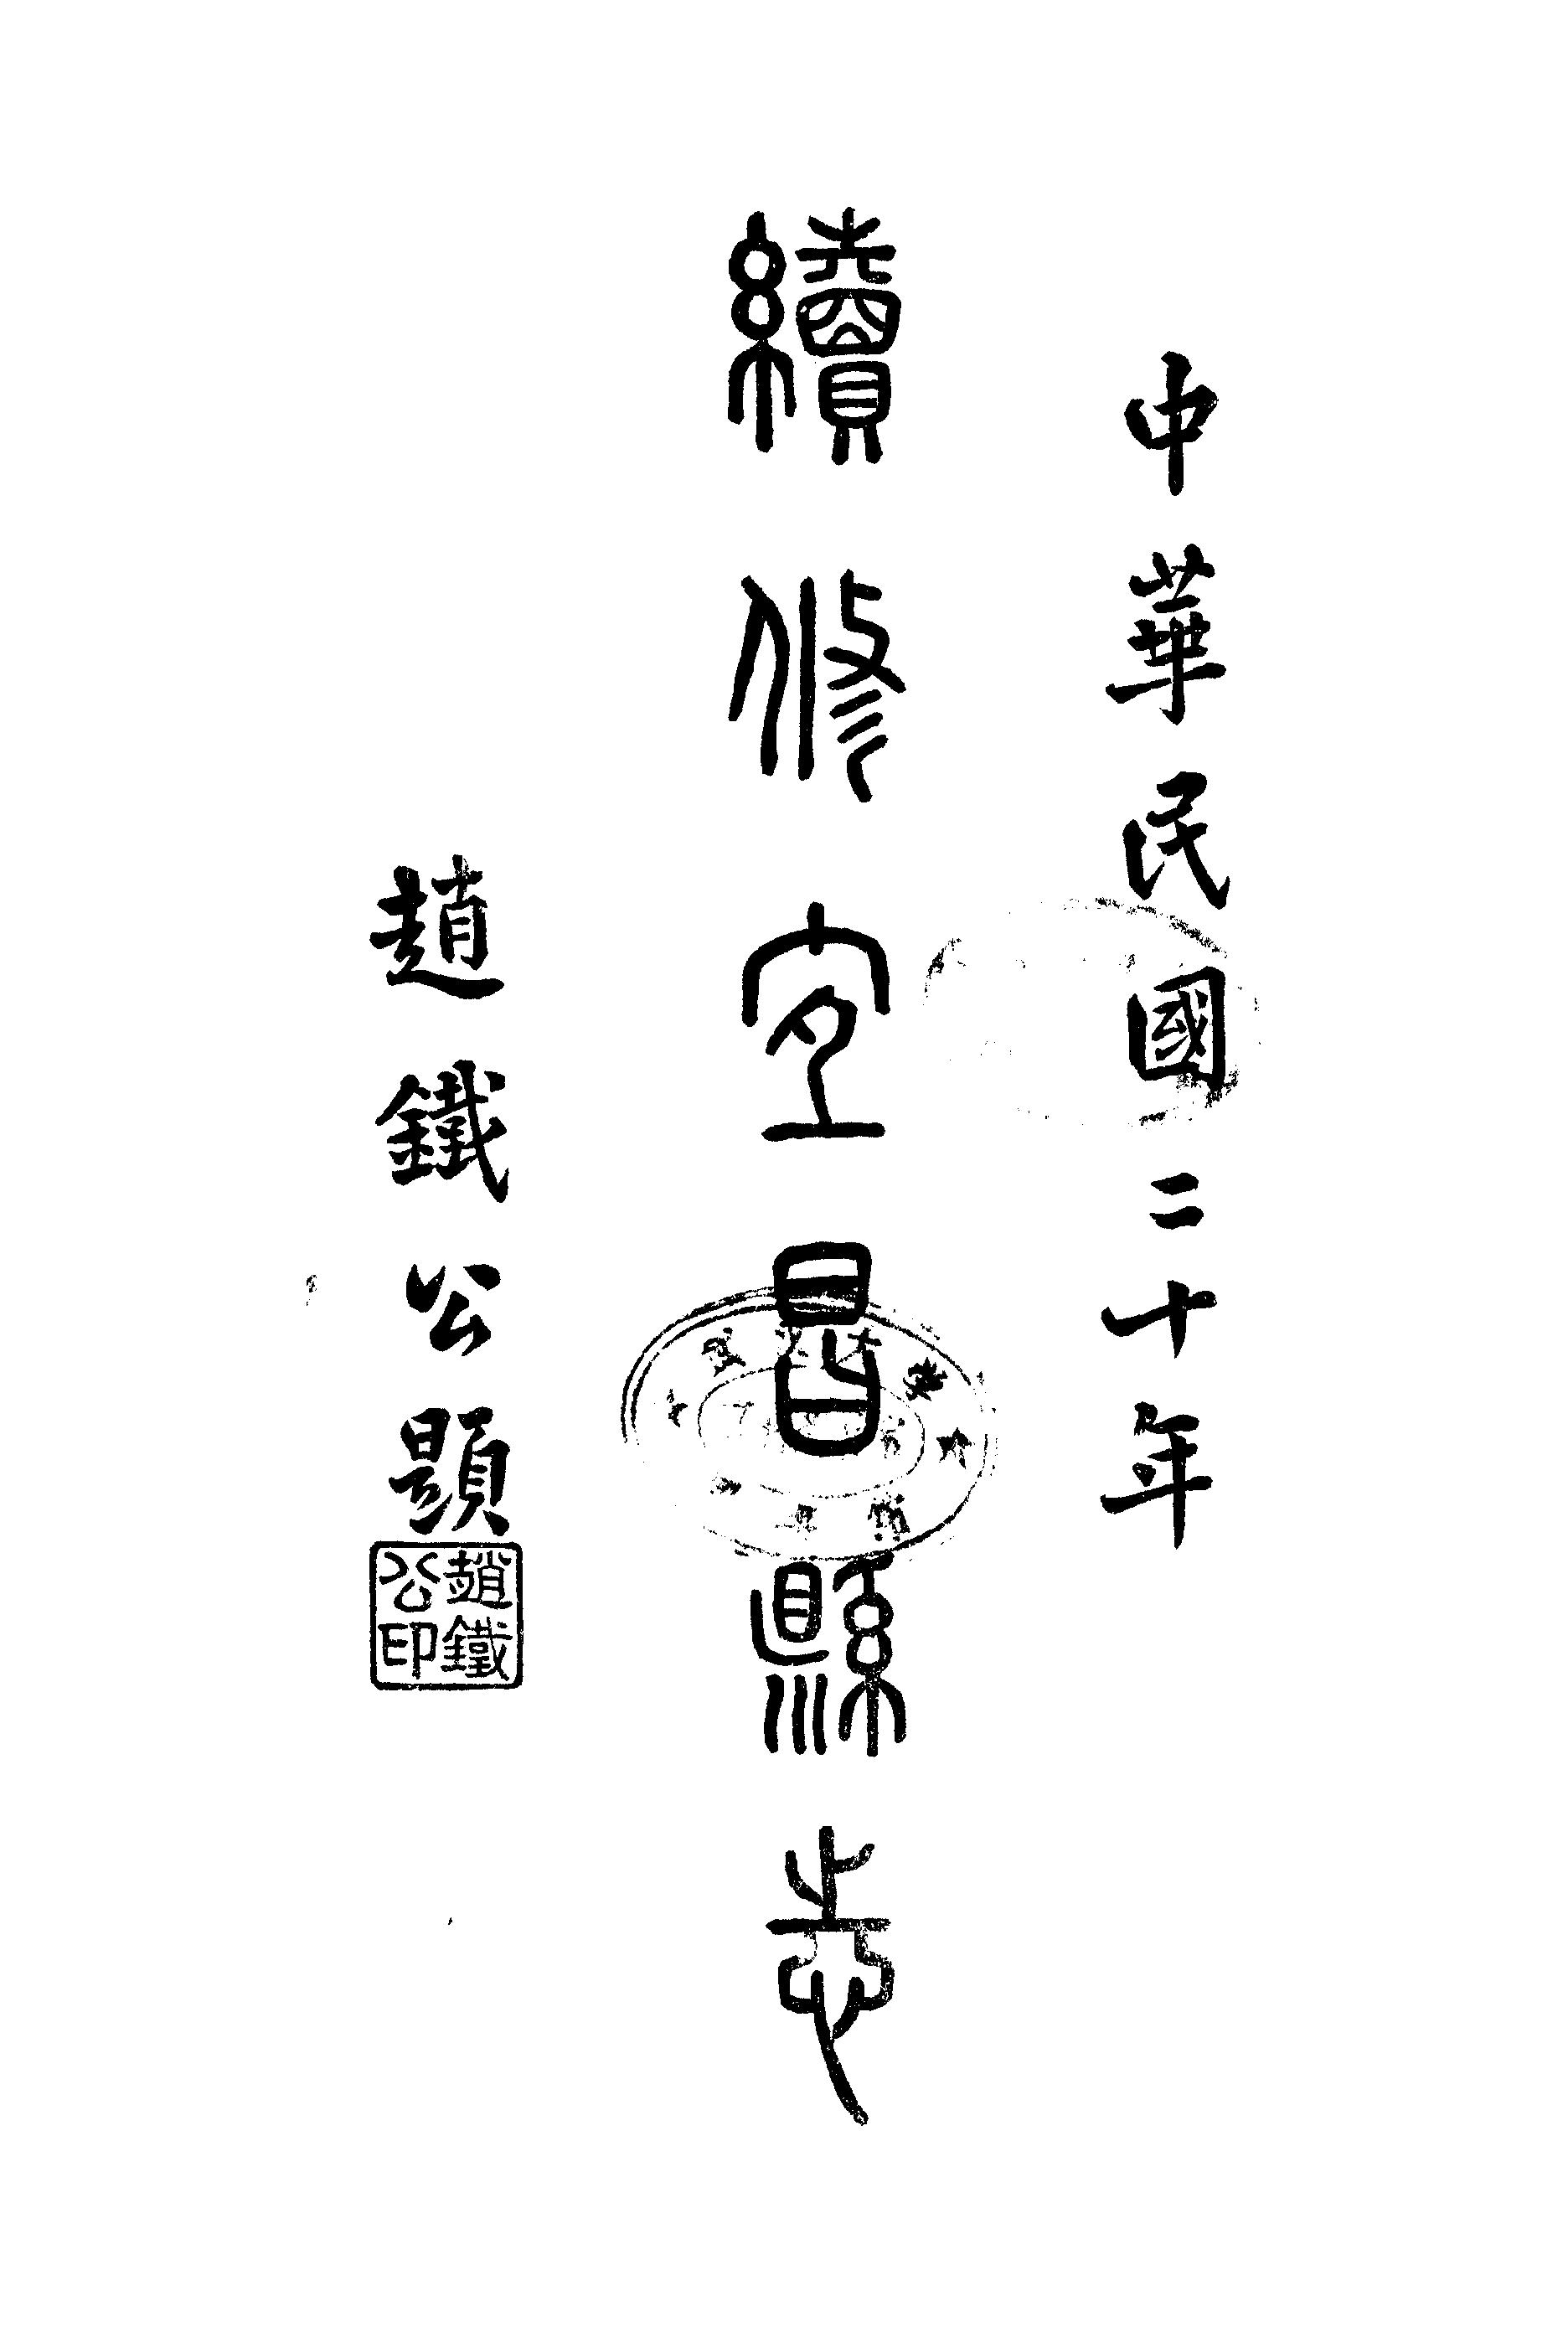 中華民國二十年
續修宜昌縣志
趙鐵公題
趙鐵公印